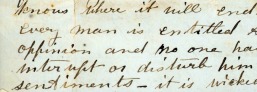 knows where it will end
every man is entitled
oppinion and no one ha
interupt or disturb him
sentiments — it is wicked